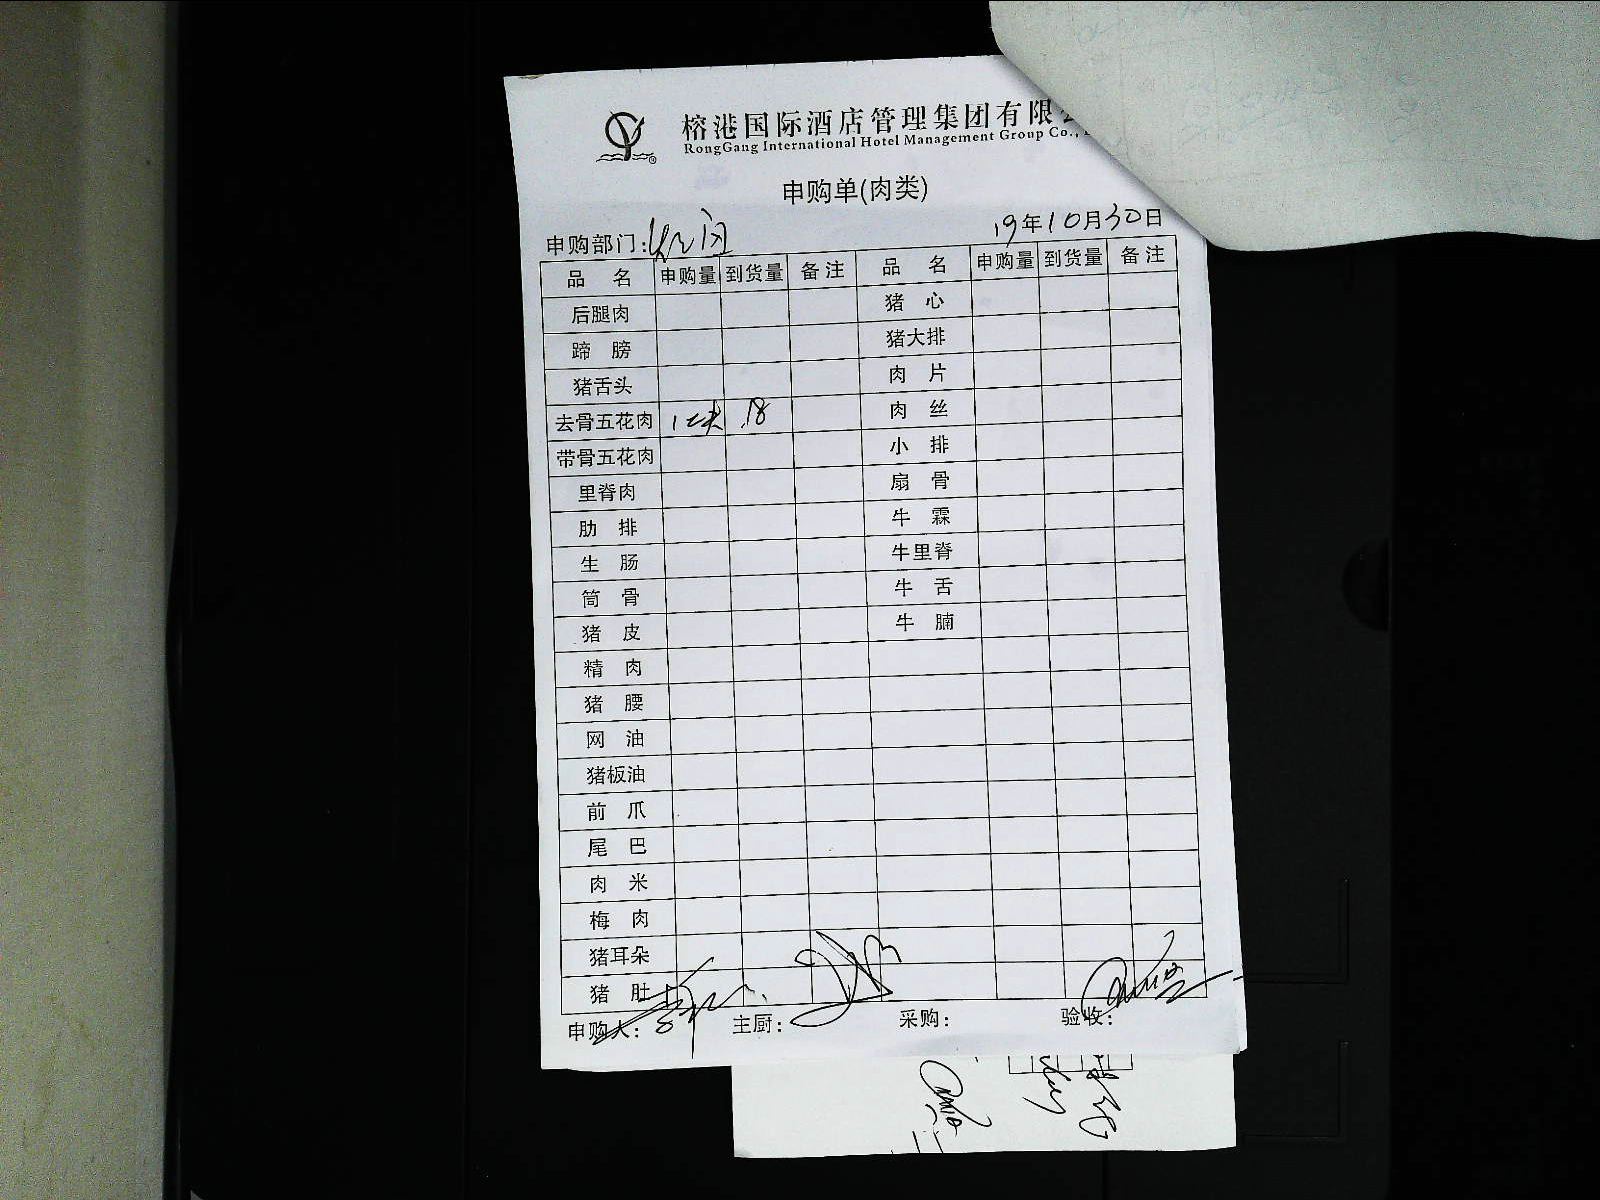 榕港国际酒店管理集团有限
RongGang International Hotel Management Group Co.,
申购单(肉类)
申购部门: 19年10月30日
品 名 申购量 到货量 备注 品 名 申购量 到货量 备注
后腿肉 猪 心
蹄 膀 猪大排
猪舌头 肉 片
去骨五花肉 18 肉 丝
带骨五花肉 小 排
里脊肉 扇 骨
肋 排 牛 霖
生 肠 牛里脊
筒 骨 牛 舌
猪 皮 牛 腩
精 肉
猪 腰
网 油
猪板油
前 爪
尾 巴
肉 米
梅 肉
猪耳朵
猪 肚
申购人: 主厨: 采购: 验收: